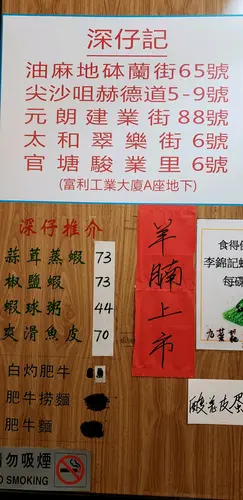 深仔記
油麻地砵蘭街65號
尖沙咀赫德道5-9號
元朗建業街88號
太和翠樂街6號
官塘駿業里6號
(富利工業大廈A座地下)
深仔推介
蒜茸蒸蝦 73
椒鹽蝦 73
蝦球粥 44
爽滑魚皮 70
白灼肥牛
肥牛撈麵
肥牛麵
羊腩上市
食得
李錦記
每碟
酸薑皮蛋
請勿吸煙
NO SMOKING